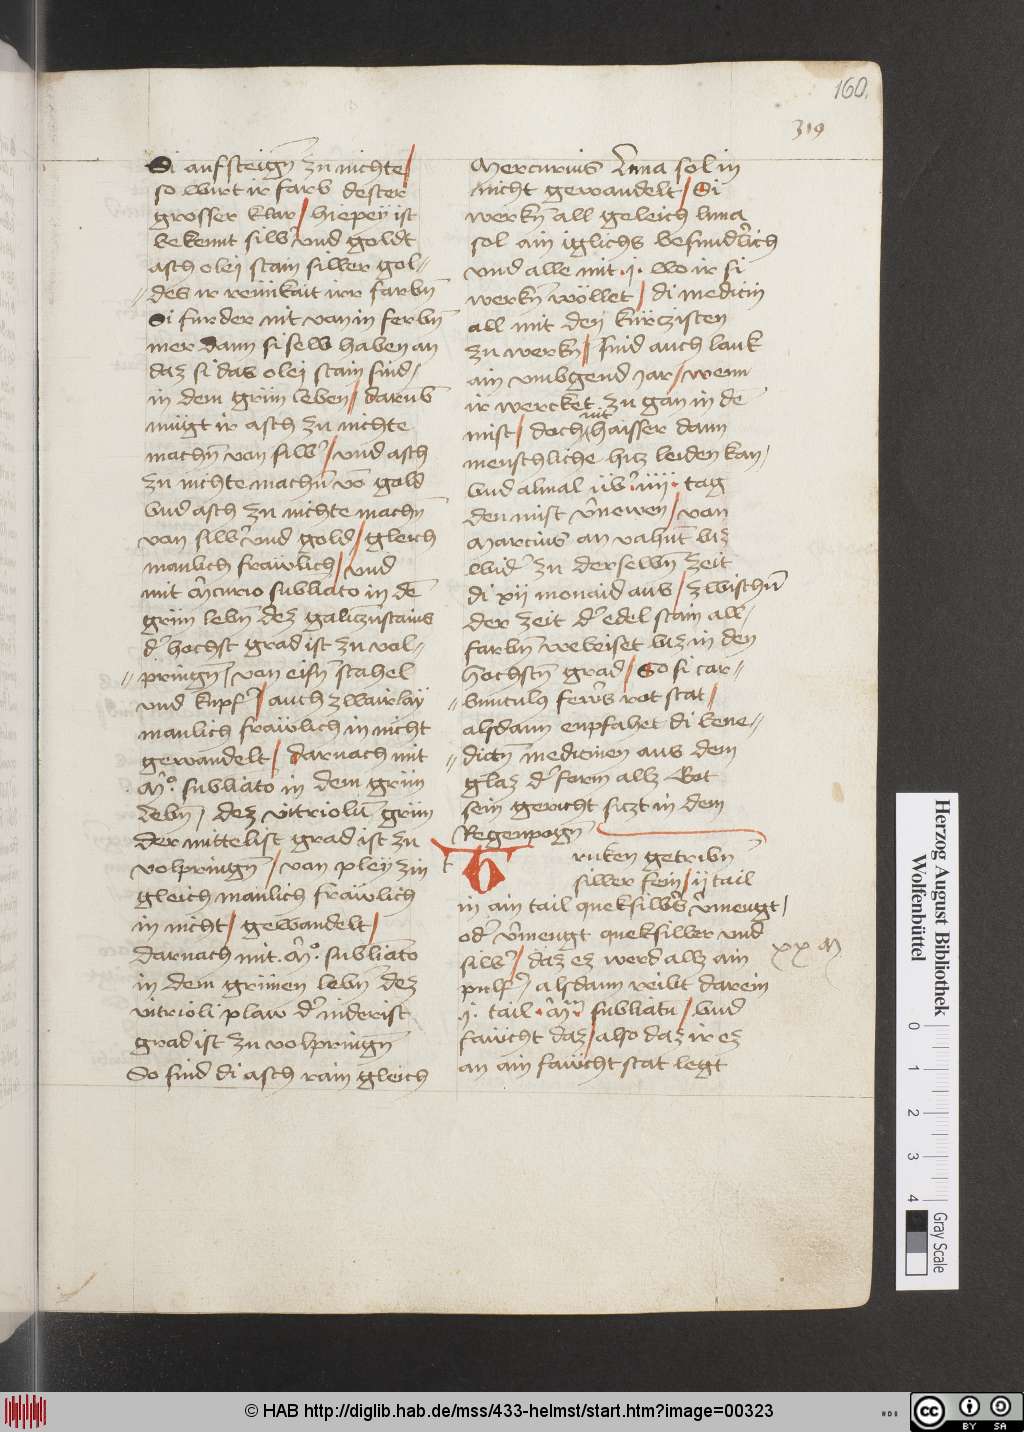 160.
319
Si aufsteign̄ zu nichte /
so wirt ir farb dester
grosser klar / hiepey ist
bekennt silbʼ und goldt
asch olei stain silber gol⸗
des ir reinikait irr farbn̄
Si furder nit von in ferbn̄
mer dann si selb haben an
daz si das olei stain sind /
in dem grün leben / darub̄
mügt ir asch zu nichte
machn̄ von silbʼ / und asch
zu nichte machn̄ vō gold
vnd asch zu nichte machn̄
von silbʼ vnd gold / gleich
manlich fräwlich / vnd
mit m̄curio subliato in dē
grün lebn̄ dez galicznstains
dʼ hochst grad ist zu vol⸗
pringn̄ / von eisn̄ stahel
vnd kupfʼ / auch zwairlay
manlich fräwlich in nicht
gewandelt / darnach mit
m̄o. subliato in dem grün
lebn̄, dez vitriolū grün
der mittelist grad ist zu
volpringn̄ / van pleÿ zin
gleich manlich fräwlich
in nicht / gewandelt /
darnach mit .m̄o. subliato
in dem grünen lebn̄ dez
vitrioli plaw dʼ niderist
grad ist zu volpringn̄
So sind di asch rain gleich
Mercurius luna sol in
nicht gewandelt / Si
werkn̄ all geleich luna
sol ain iglichs besundʼlich
vnd alle mit .j. wo ir si
werkn̄ wöllet / di medicin
all mit den kürczisten
zu werkn̄ / sind auch lank
ain vmbgend jar / wenn
ir wercket zu gan in dē
mist / doch nit haisser dann
menschliche hicz leiden kan /
vnd almal üb̄ .iiij. tag
den mist v̄newen / van
Marcius an vahn̄t biz
widʼ zu derselbn̄ zeit
di xij monaid aus / zwischn̄
der zeit dʼ edel stain all⸗
farbn̄ beweiset biz in den
hochstn̄ grad / So si car⸗
bunculus fewrs rot stat /
alsdann enpfahet di bene⸗
dictn̄ medicinen aus dem
glaz dʼ form allz Got
sein gericht siczt in dem
Regenpogn̄
t Truken getribn̄
silber fein / ij tail
in ain tail queksilbʼs v̄mengt /
odʼ v̄mengt queksilber vnd
silbʼ / daz ez werd allz ain
pulfʼ / alsdann reibt darein
.j. tail .m̄. subliatū / vnd
fawcht daz / also daz ir ez
an ain fawcht stat legt
xx m
Herzog August Bibliothek
Wolfenbüttel
0 1 2 3 4
Gray Scale
© HAB http://diglib.hab.de/mss/433-helmst/start.htm?image=00323
cc BY SA